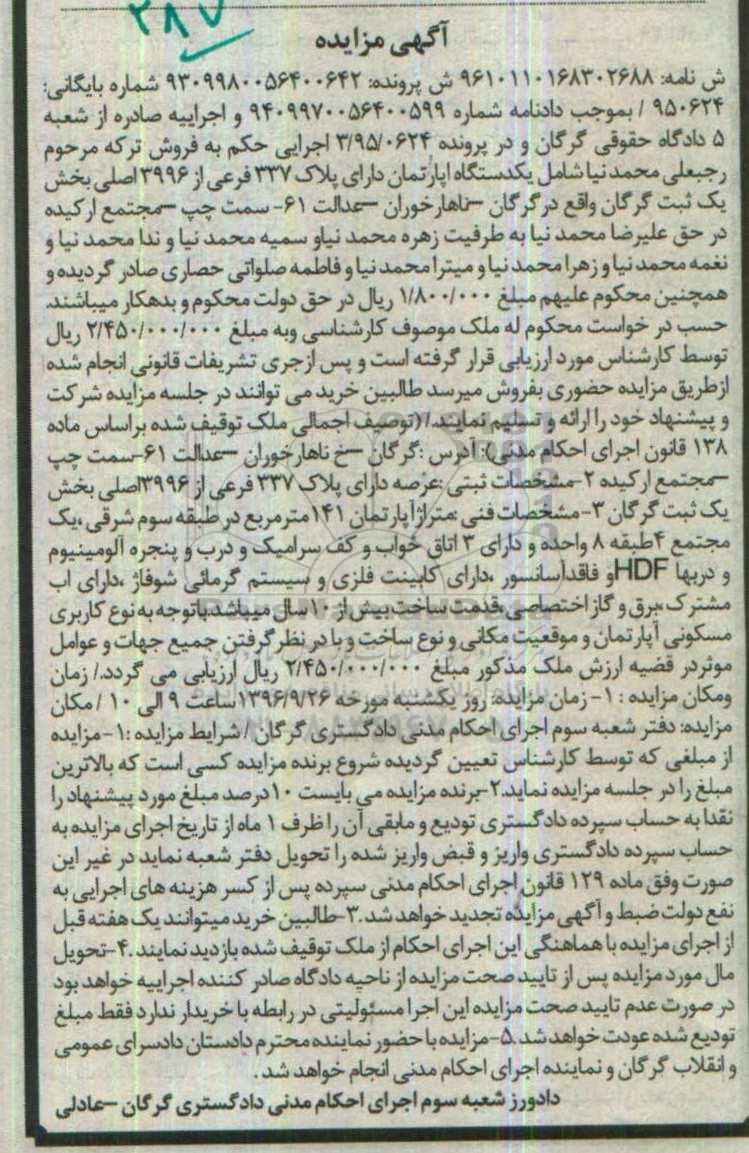 ۲۸۷
آگهی مزایده
ش نامه: ۹۶۱۰۱۱۰۱۶۸۳۰۲۶۸۸ ش پرونده: ۹۳۰۹۹۸۰۰۵۶۴۰۰۶۴۲ شماره بایگانی:
۹۵۰۶۲۴ / بموجب دادنامه شماره ۹۴۰۹۹۷۰۰۵۶۴۰۰۵۹۹ و اجراییه صادره از شعبه
۵ دادگاه حقوقی گرگان و در پرونده ۳/۹۵/۰۶۲۴ اجرایی حکم به فروش ترکه مرحوم
رجبعلی محمدنیا شامل یکدستگاه اپارتمان دارای پلاک ۳۳۷ فرعی از ۳۹۹۶ اصلی بخش
یک ثبت گرگان واقع در گرگان –ناهارخوران –عدالت ۶۱- سمت چپ –مجتمع ارکیده
در حق علیرضا محمد نیا به طرفیت زهره محمد نیاو سمیه محمد نیا و ندا محمد نیا و
نغمه محمد نیا و زهرا محمد نیا و میترا محمد نیا و فاطمه صلواتی حصاری صادر گردیده و
همچنین محکوم علیهم مبلغ ۱/۸۰۰/۰۰۰ ریال در حق دولت محکوم و بدهکار میباشند.
حسب در خواست محکوم له ملک موصوف کارشناسی وبه مبلغ ۲/۴۵۰/۰۰۰/۰۰۰ ریال
توسط کارشناس مورد ارزیابی قرار گرفته است و پس ازجری تشریفات قانونی انجام شده
ازطریق مزایده حضوری بفروش میرسد طالبین خرید می توانند در جلسه مزایده شرکت
و پیشنهاد خود را ارائه و تسلیم نمایند./ (توصیف اجمالی ملک توقیف شده براساس ماده
۱۳۸ قانون اجرای احکام مدنی): آدرس :گرگان –خ ناهارخوران –عدالت ۶۱-سمت چپ
–مجتمع ارکیده ۲-مشخصات ثبتی :عرصه دارای پلاک ۳۳۷ فرعی از ۳۹۹۶اصلی بخش
یک ثبت گرگان ۳- مشخصات فنی :متراژ آپارتمان ۱۴۱مترمربع در طبقه سوم شرقی ،یک
مجتمع ۴طبقه ۸ واحده و دارای ۳ اتاق خواب و کف سرامیک و درب و پنجره آلومینیوم
و دربها HDFو فاقدآسانسور ،دارای کابینت فلزی و سیستم گرمائی شوفاژ ،دارای اب
مشترک ،برق و گاز اختصاصی،قدمت ساخت بیش از ۱۰سال میباشد.باتوجه به نوع کاربری
مسکونی آپارتمان و موقعیت مکانی و نوع ساخت و با در نظر گرفتن جمیع جهات و عوامل
موثردر قضیه ارزش ملک مذکور مبلغ ۲/۴۵۰/۰۰۰/۰۰۰ ریال ارزیابی می گردد./ زمان
ومکان مزایده : ۱- زمان مزایده: روز یکشنبه مورخه ۱۳۹۶/۹/۲۶ساعت ۹ الی ۱۰ /مکان
مزایده: دفتر شعبه سوم اجرای احکام مدنی دادگستری گرگان / شرایط مزایده :۱-مزایده
از مبلغی که توسط کارشناس تعیین گردیده شروع برنده مزایده کسی است که بالاترین
مبلغ را در جلسه مزایده نماید.۲-برنده مزایده می بایست ۱۰درصد مبلغ مورد پیشنهاد را
نقدا به حساب سپرده دادگستری تودیع و مابقی آن را ظرف ۱ ماه از تاریخ اجرای مزایده به
حساب سپرده دادگستری واریز و قبض واریز شده را تحویل دفتر شعبه نماید در غیر این
صورت وفق ماده ۱۲۹ قانون اجرای احکام مدنی سپرده پس از کسر هزینه های اجرایی به
نفع دولت ضبط و آگهی مزایده تجدید خواهد شد.۳-طالبین خرید میتوانند یک هفته قبل
از اجرای مزایده با هماهنگی این اجرای احکام از ملک توقیف شده بازدید نمایند .۴-تحویل
مال مورد مزایده پس از تایید صحت مزایده از ناحیه دادگاه صادر کننده اجراییه خواهد بود
در صورت عدم تایید صحت مزایده این اجرا مسئولیتی در رابطه با خریدار ندارد فقط مبلغ
تودیع شده عودت خواهد شد .۵-مزایده با حضور نماینده محترم دادستان دادسرای عمومی
و انقلاب گرگان و نماینده اجرای احکام مدنی انجام خواهد شد .
دادورز شعبه سوم اجرای احکام مدنی دادگستری گرگان –عادلی